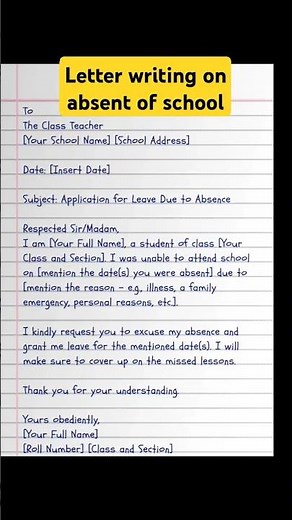 Letter writing on
absent of school
To
The Class Teacher
[Your School Name] [School Address]
Date: [Insert Date]
Subject: Application for Leave Due to Absence
Respected Sir/Madam,
I am [Your Full Name], a student of class [Your
Class and Section]. I was unable to attend school
on [mention the date(s) you were absent] due to
[mention the reason – e.g., illness, a family
emergency, personal reasons, etc.].
I kindly request you to excuse my absence and
grant me leave for the mentioned date(s). I will
make sure to cover up on the missed lessons.
Thank you for your understanding.
Yours obediently,
[Your Full Name]
[Roll Number] [Class and Section]